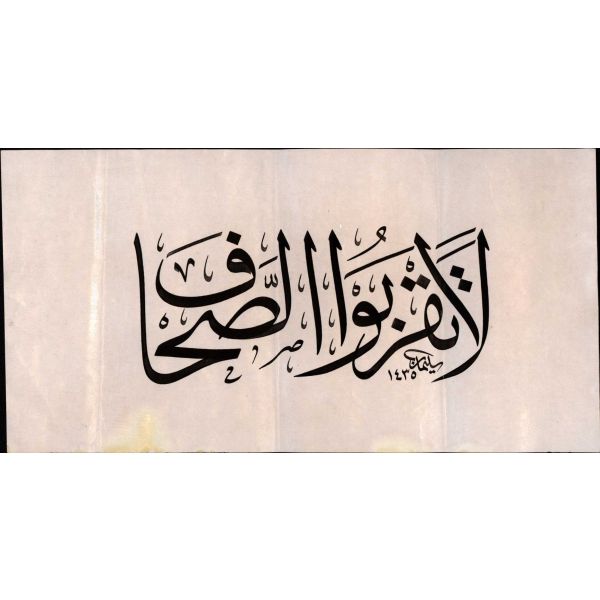 لَا تَقْرَبُوا الصَّحَاف
سليمان
١٤٣٥